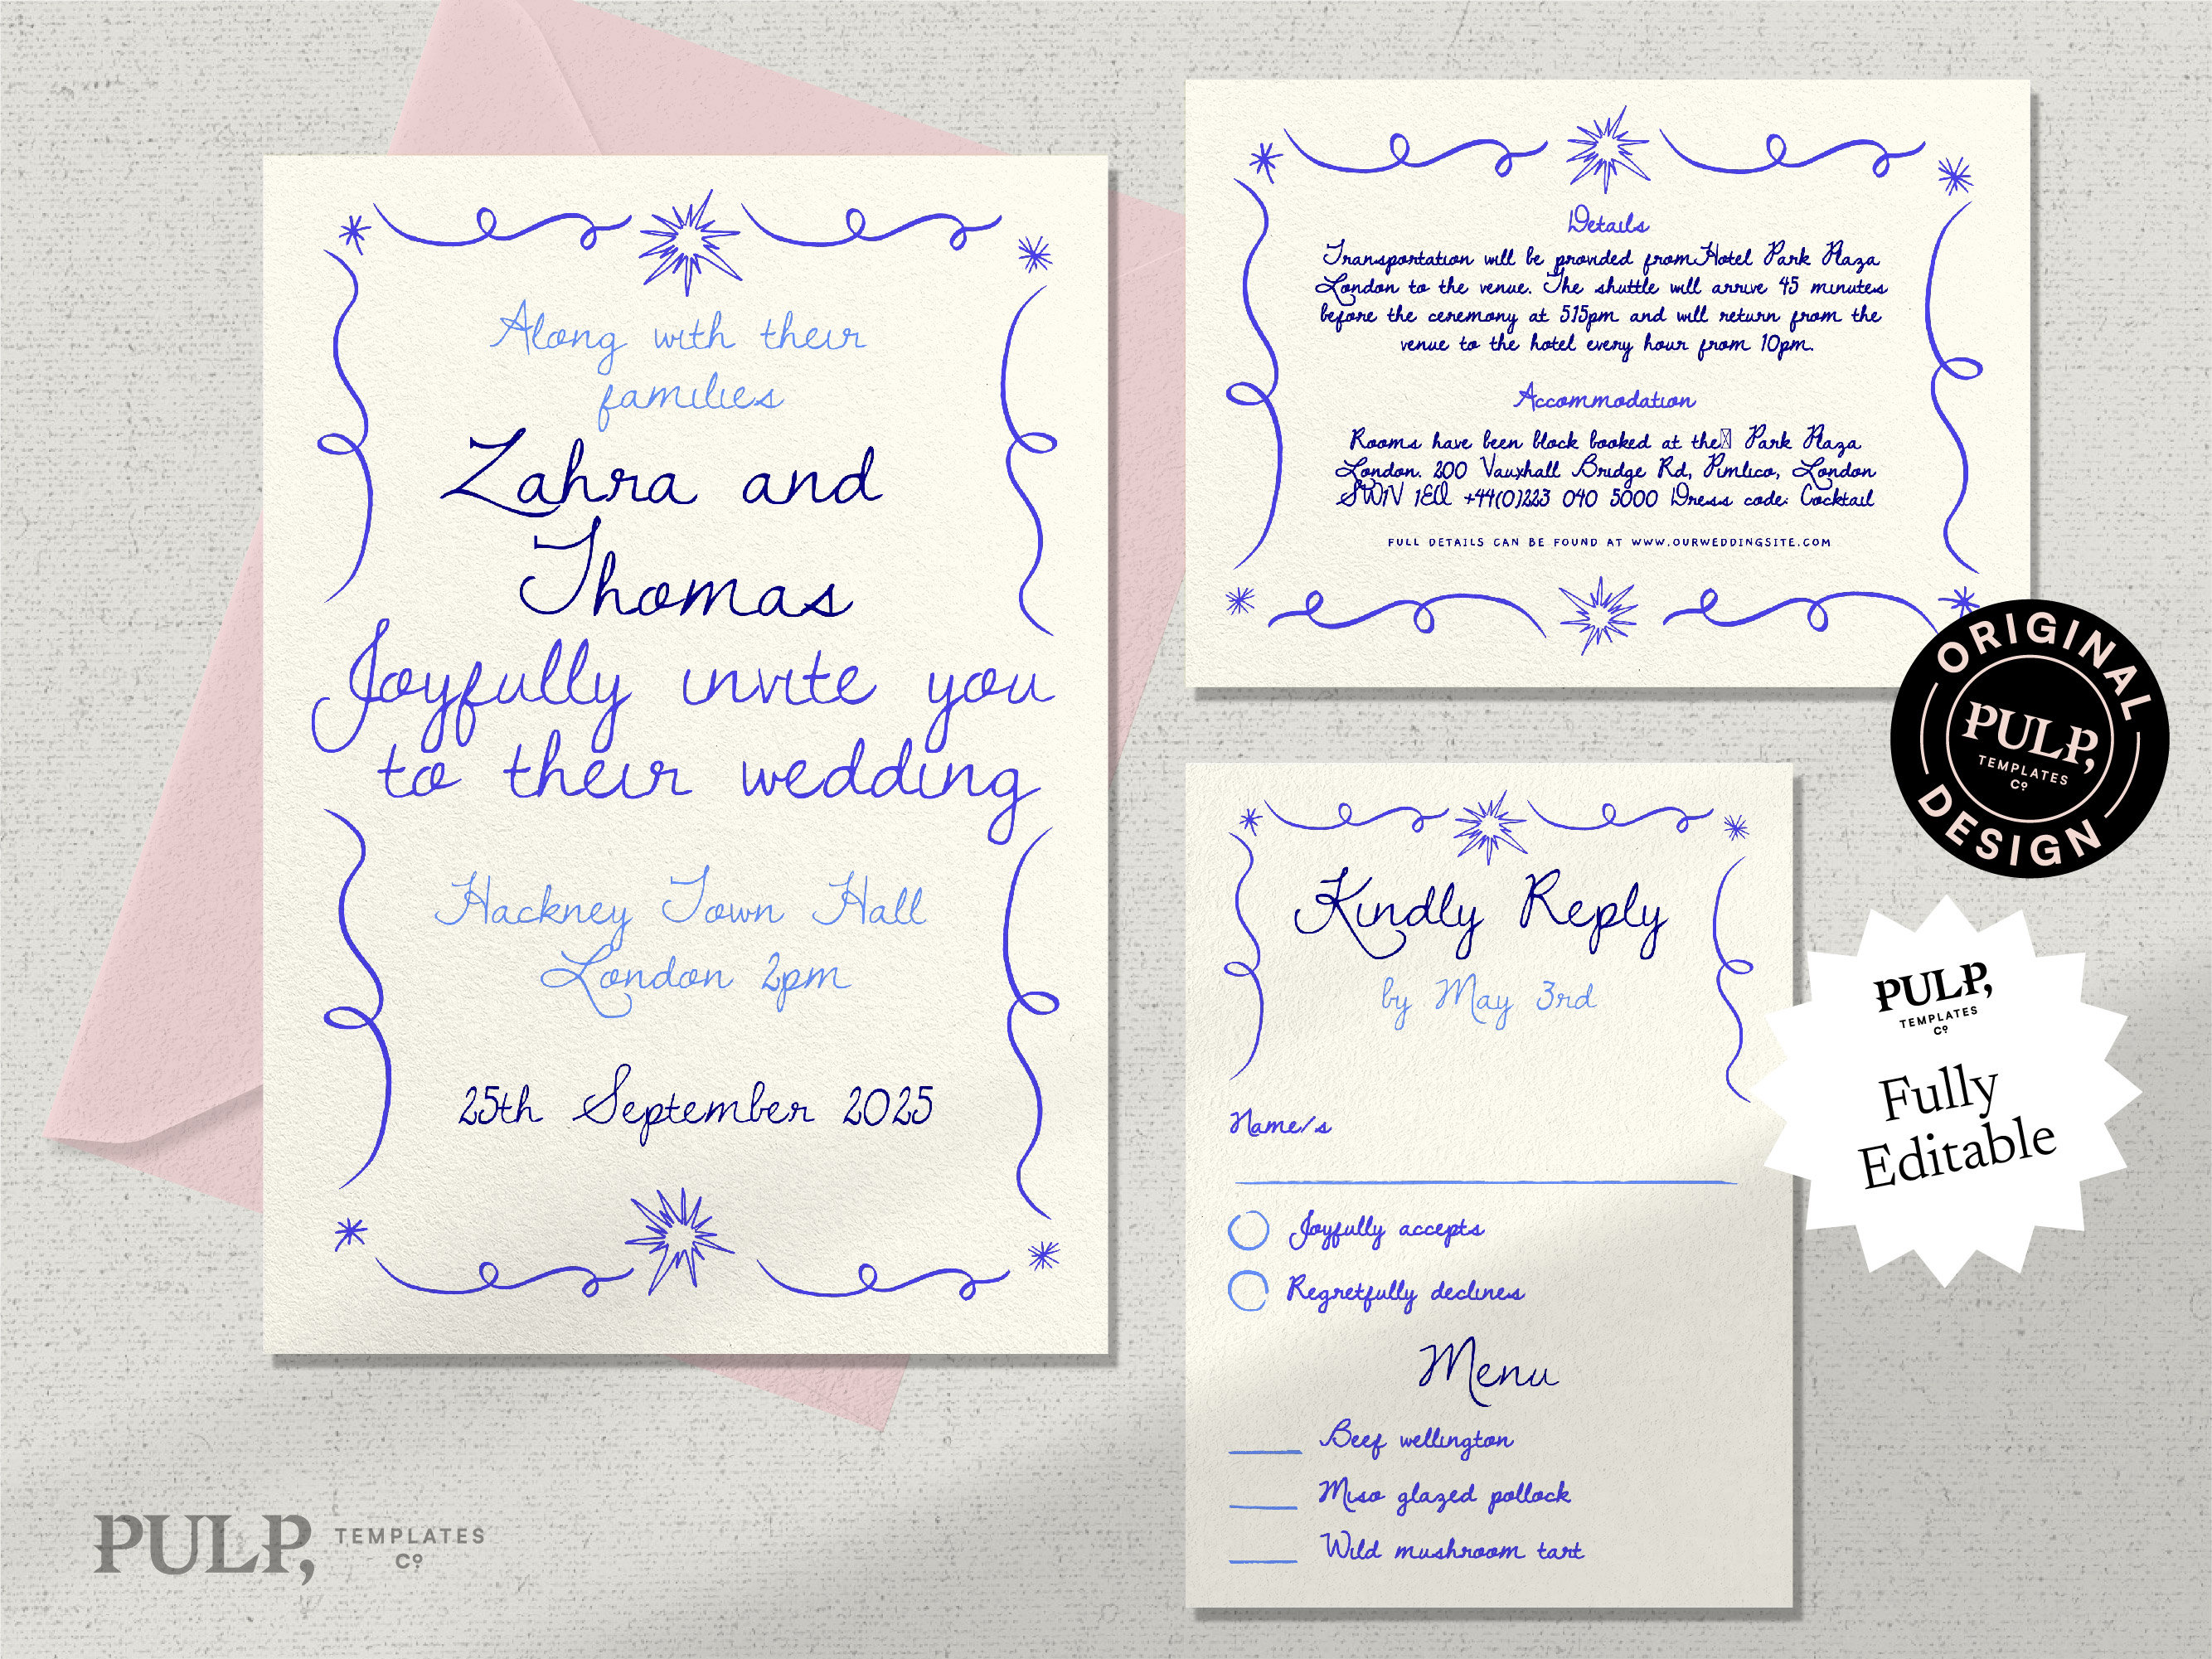 Along with their
families
Zahra and
Thomas
Joyfully invite you
to their wedding
Hackney Town Hall
London 2pm
25th September 2025
Details
Transportation will be provided from Hotel Park Plaza
London to the venue. The shuttle will arrive 45 minutes
before the ceremony at 515pm and will return from the
venue to the hotel every hour from 10pm.
Accommodation
Rooms have been block booked at the Park Plaza
London. 200 Vauxhall Bridge Rd, Pimlico, London
SW1V 1EQ +44(0)223 040 5000 Dress code: Cocktail
FULL DETAILS CAN BE FOUND AT WWW.OURWEDDINGSITE.COM
ORIGINAL
PULP,
TEMPLATES
Co
DESIGN
Kindly Reply
by May 3rd
Name/s
Joyfully accepts
Regretfully declines
Menu
Beef wellington
Miso glazed pollock
Wild mushroom tart
PULP,
TEMPLATES
Co
Fully
Editable
PULP, TEMPLATES
Co